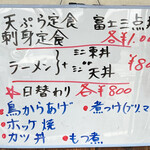 天ぷら定食 富士三点
刺身定食 各¥1.00
ラーメン+ミニ東丼
ミニ天丼 ¥8
☆日替わり 各¥800
・鳥からあげ ・煮つけ(ブリ
・ホッケ焼
・カツ丼 ・もつ煮